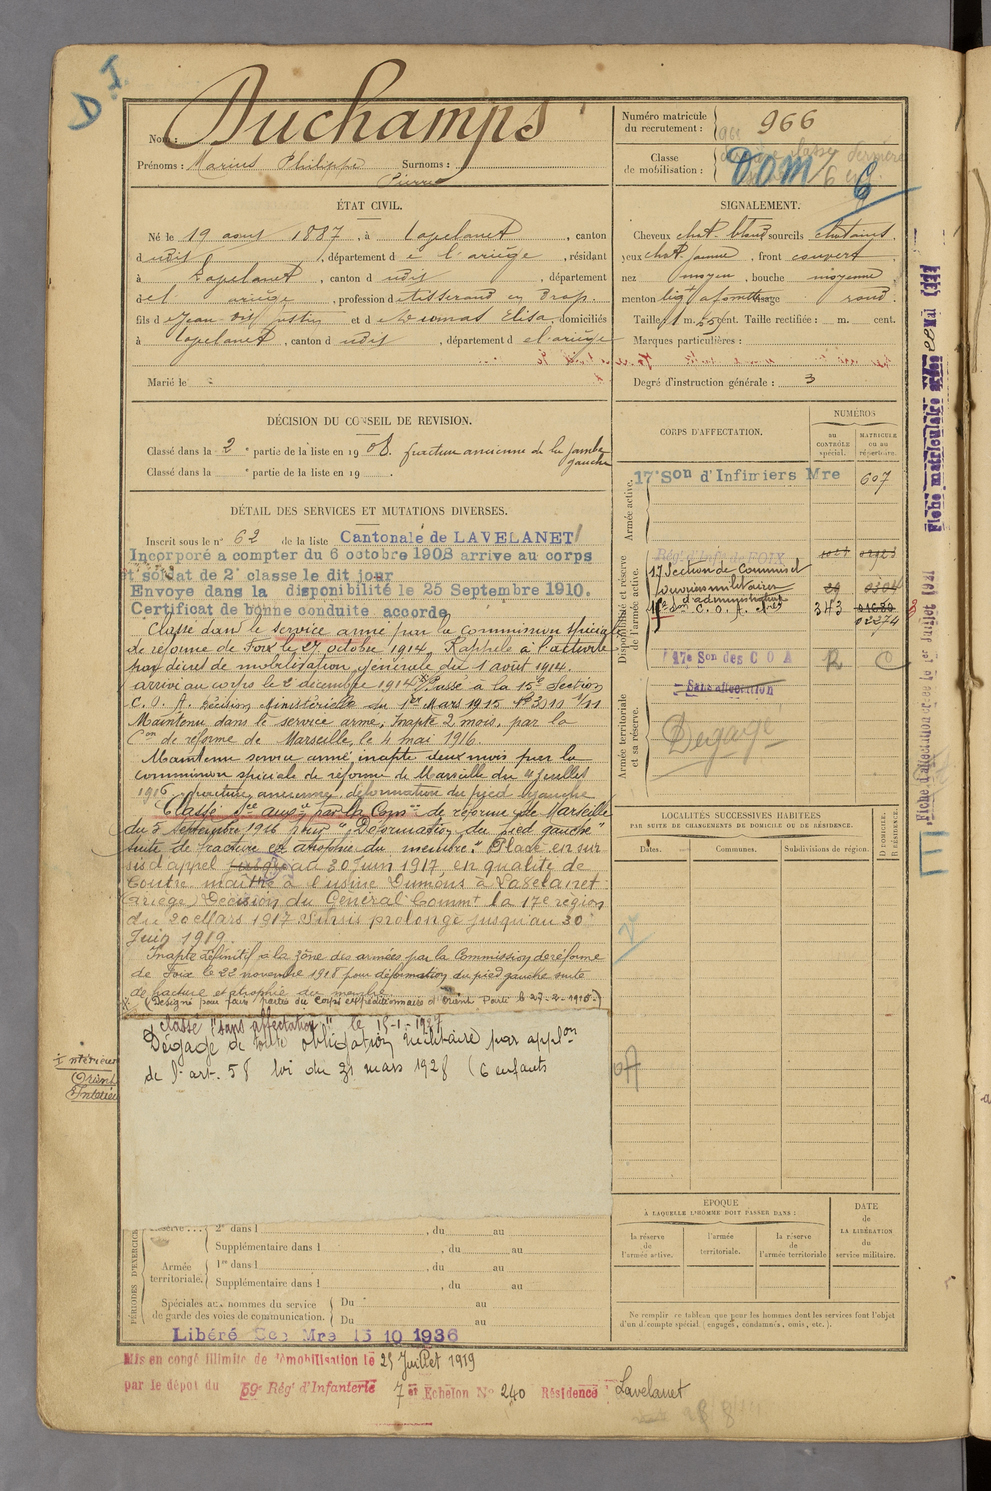 D I
Nom : Duchamps
Prénoms : Marius Philippe Surnoms :
Pierre
Numéro matricule du recrutement : 966
Classe de mobilisation : dom 6
ÉTAT CIVIL.
Né le 19 aout 1887, à Lavelanet, canton
dudit, département de l'ariège, résidant
à Lavelanet, canton dudit, département
de l ariège, profession de tisserand en drap.
fils de Jean-Bte Justin et de Dumas Elisa, domiciliés
à Lavelanet, canton dudit, département de l'ariège
Marié le
SIGNALEMENT.
Cheveux chat. blond sourcils chatains,
yeux chat. jaune, front couvert
nez moyen, bouche moyenne
menton visage rond.
Taille : 1 m. 55 cent. Taille rectifiée : m. cent.
Marques particulières :
Degré d'instruction générale : 3
DÉCISION DU CONSEIL DE REVISION.
Classé dans la 2e partie de la liste en 1908. fracture ancienne de la jambe
gauche
Classé dans la e partie de la liste en 19
DÉTAIL DES SERVICES ET MUTATIONS DIVERSES.
Inscrit sous le n° 62 de la liste Cantonale de LAVELANET
Incorporé a compter du 6 octobre 1908 arrive au corps
et soldat de 2e classe le dit jour
Envoye dans la disponibilité le 25 Septembre 1910.
Certificat de bonne conduite accorde
Classé dans le service armé par la Commission spéciale
de réforme de Foix le 27 octobre 1914. Rappelé à l'activité
par décret de mobilisation générale du 1 août 1914.
arrivé au corps le 2 décembre 1914 Passé à la 15e Section
C. O. A. Décision Ministérielle du 1er Mars 1915
Maintenu dans le service armé, Inapte 2 mois, par la
Con de réforme de Marseille, le 4 mai 1916.
Maintenu service armé inapte deux mois par la
commission spéciale de réforme de Marseille du 4 juillet
1916 fracture ancienne, déformation du pied gauche
Classé sce auxre par la Comon de réforme de Marseille
du 5 septembre 1916 pour "Déformation du pied gauche"
suite de fracture et atrophie du membre". Placé en sur
sis d'appel au 30 Juin 1917, en qualité de
Contre maître à l'usine Dumons à Lavelanet
(Ariège) Décision du Général Commt la 17e région
du 20 Mars 1917 Sursis prolongé jusqu'au 30
Juin 1919
Inapte définitif à la zône des armées par la Commission de réforme
de Foix le 22 novembre 1918 pour déformation du pied gauche suite
de fracture et atrophie du membre
(Désigné pour faire partie du Corps expéditionnaire d'Orient Parti le 27-2-1916.)
Classé "sans affectation" le 15-1-1927
Dégagé de toute obligation militaire par applon
de l'art. 58 loi du 31 mars 1928 (6 enfants
Intérieur
Orient
Intérieur
CORPS D'AFFECTATION.
NUMÉROS
AU CONTRÔLE spécial.
MATRICULE ou au répertoire.
Armée active.
17e Son d'Infirmiers Mre 607
Disponibilité et réserve de l'armée active.
Régt d'Infie de FOIX
17 Section de Commis et
ouvriers militaires
d'administration
C. O. A. 343 02274
17e Son des C O A R C
Armée territoriale et sa réserve.
Sans affectation
Dégagé
LOCALITÉS SUCCESSIVES HABITÉES
PAR SUITE DE CHANGEMENTS DE DOMICILE OU DE RÉSIDENCE.
Dates. Communes. Subdivisions de région. D DOMICILE. R RÉSIDENCE.
OA
EPOQUE
À LAQUELLE L'HOMME DOIT PASSER DANS :
la réserve de l'armée active. l'armée territoriale. la réserve de l'armée territoriale
DATE DE LA LIBÉRATION du service militaire.
Ne remplir ce tableau que pour les hommes dont les services font l'objet
d'un décompte spécial (engagés, condamnés, omis, etc.).
PÉRIODES D'EXERCICE
2e dans l , du au
Supplémentaire dans l , du au
Armée territoriale.
1re dans l , du au
Supplémentaire dans l , du au
Spéciales aux hommes du service de garde des voies de communication.
Du au
Du au
Libéré Mre 15 10 1936
Mis en congé illimité de démobilisation le 25 Juillet 1919
par le dépot du 59e Régt d'Infanterie 7e Echelon N° 240 Résidence : Lavelanet